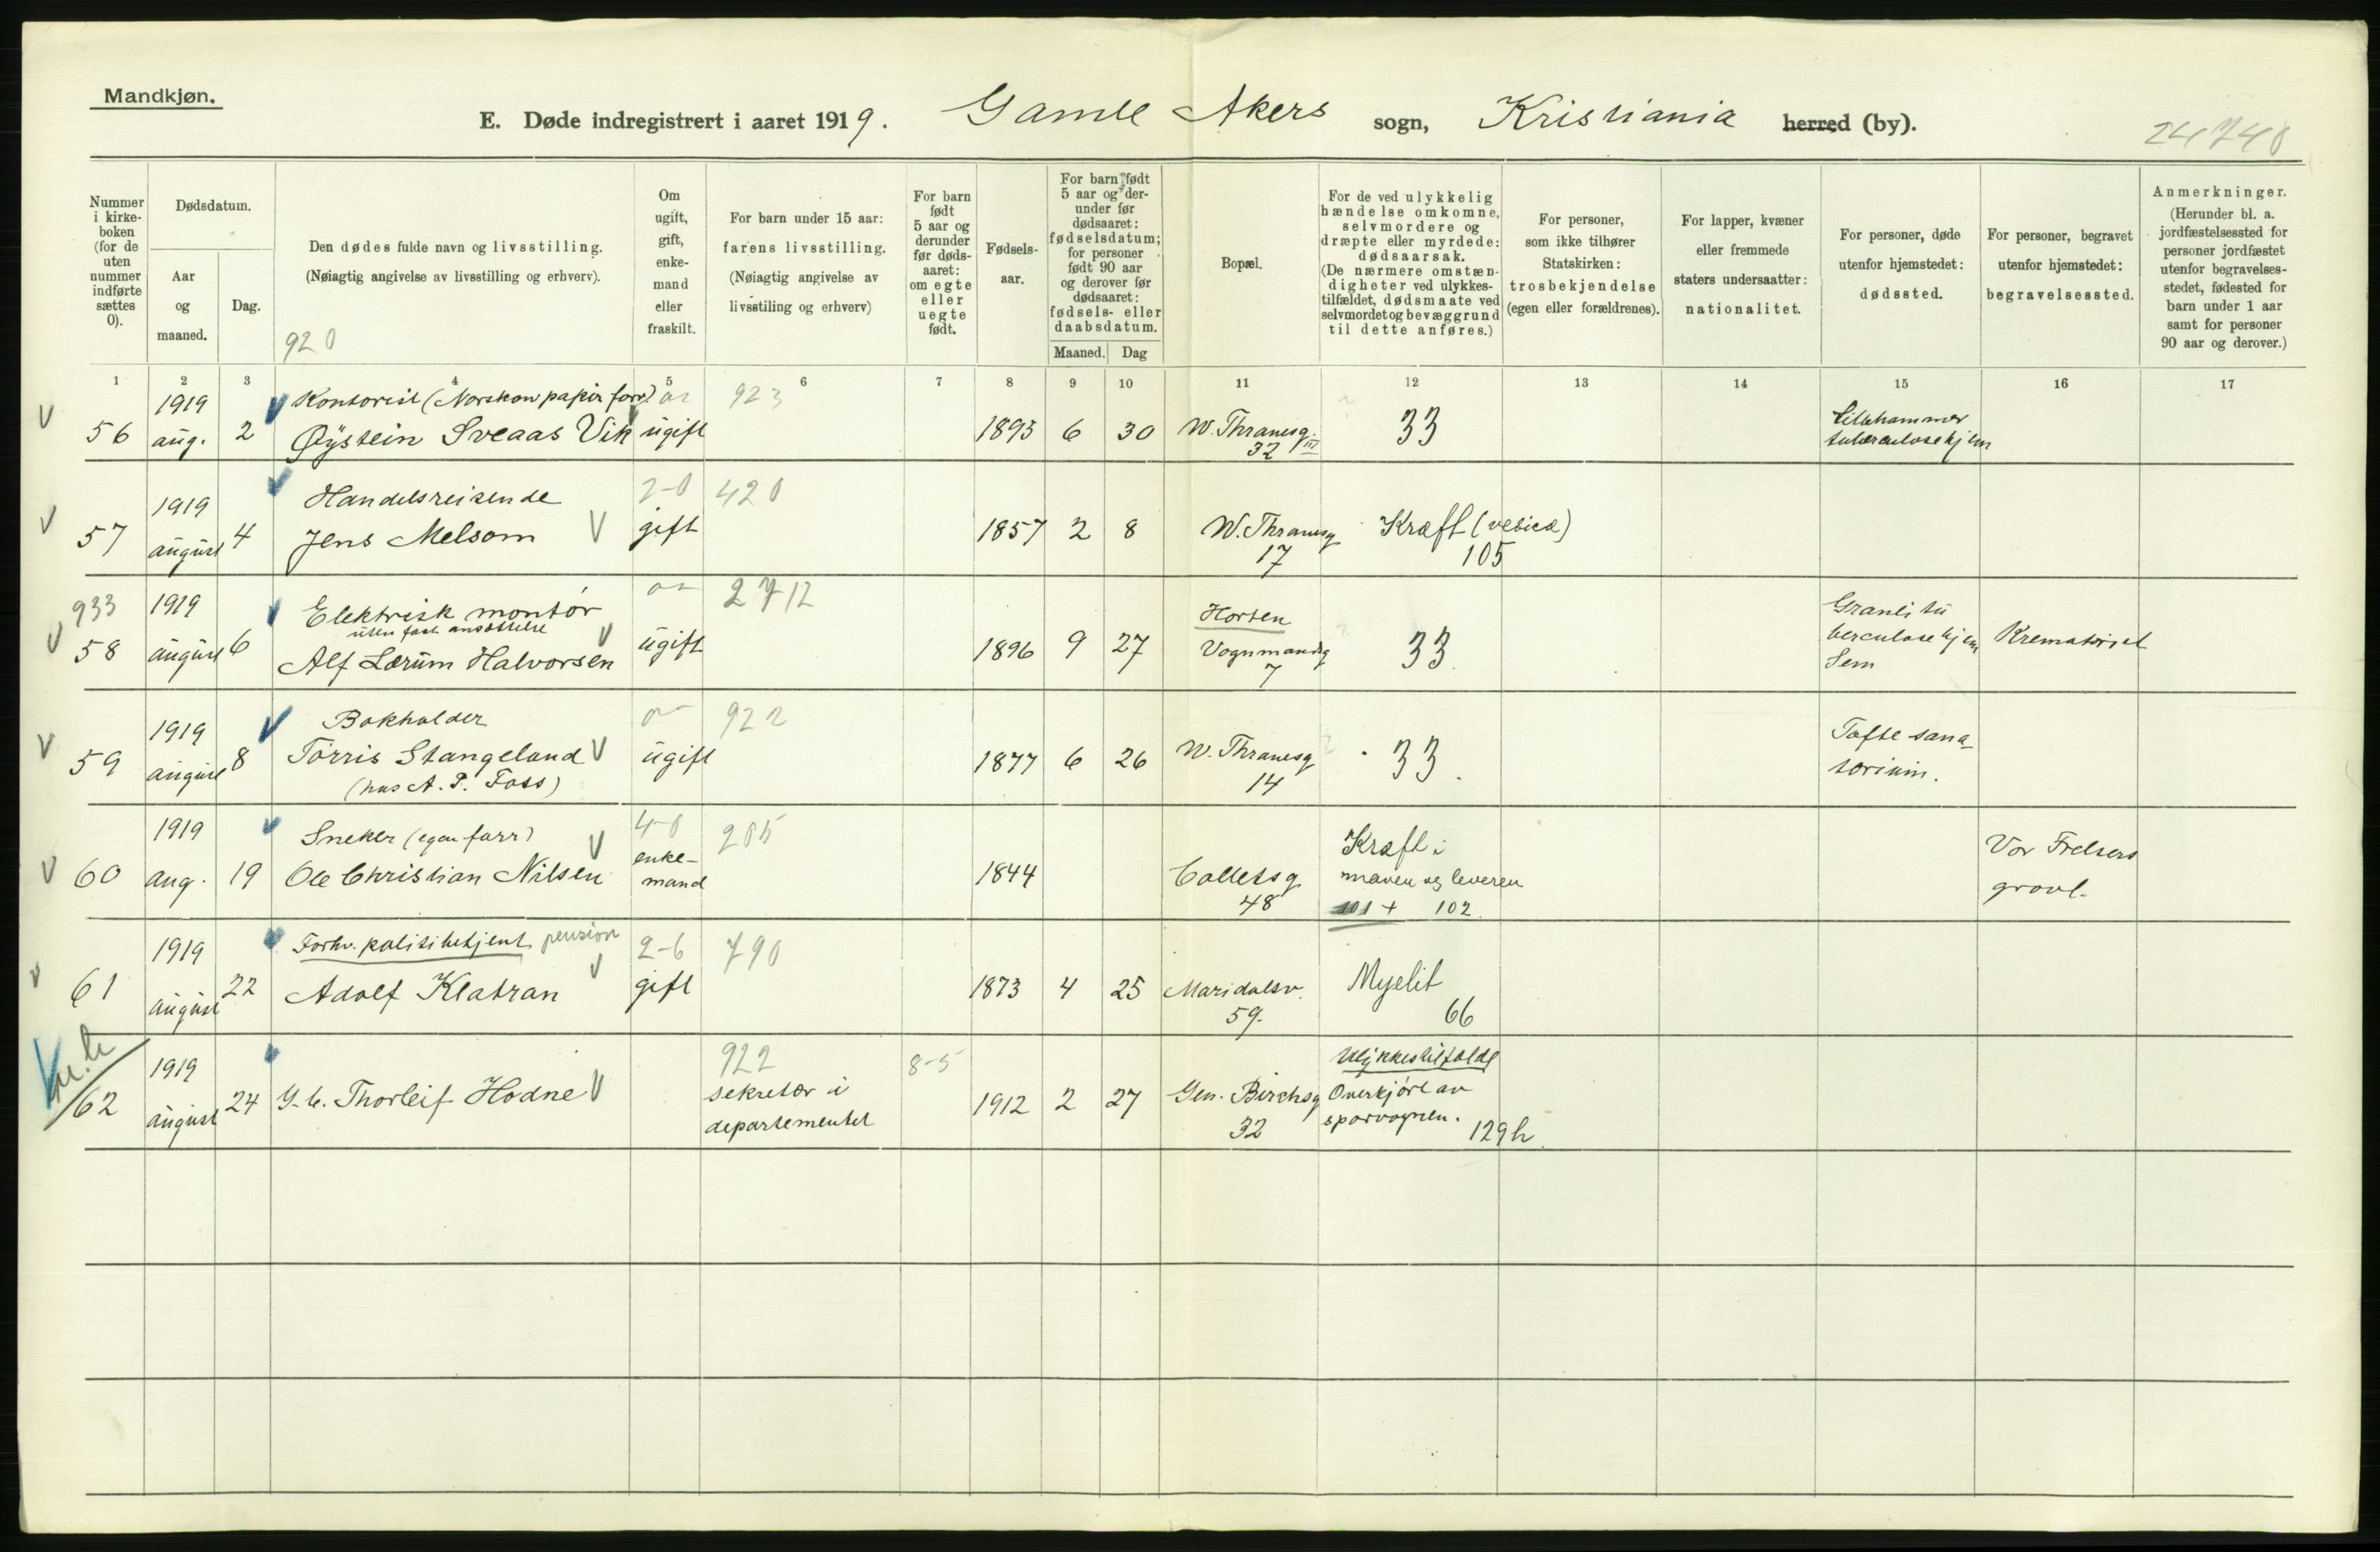 Mandkjøn.
E. Døde indregistrert i aaret 1919. Gamle Akers sogn, Kristiania herred (by).
24740
Nummer i kirke-boken (for de uten nummer indførte sættes 0).
Dødsdatum.
Aar og maaned.
Dag.
Den dødes fulde navn og livsstilling.
(Nøiagtig angivelse av livsstilling og erhverv).
920
Om ugift, gift, enke-mand eller fraskilt.
For barn under 15 aar:
farens livsstilling.
(Nøiagtig angivelse av livsstiling og erhverv)
For barn født 5 aar og derunder før døds-aaret: om egte eller uegte født.
Fødsels-aar.
For barn født 5 aar og der-under før dødsaaret: fødselsdatum; for personer født 90 aar og derover før dødsaaret: fødsels- eller daabsdatum.
Maaned. Dag
Bopæl.
For de ved ulykkelig hændelse omkomne, selvmordere og dræpte eller myrdede: dødsaarsak. (De nærmere omstæn-digheter ved ulykkes-tilfældet, dødsmaate ved selvmordet og bevæggrund til dette anføres.)
For personer, som ikke tilhører Statskirken: trosbekjendelse (egen eller forældrenes).
For lapper, kvæner eller fremmede staters undersaatter: nationalitet.
For personer, døde utenfor hjemstedet: dødssted.
For personer, begravet utenfor hjemstedet: begravelsessted.
Anmerkninger.
(Herunder bl. a. jordfæstelsessted for personer jordfæstet utenfor begravelses-stedet, fødested for barn under 1 aar samt for personer 90 aar og derover.)
1 2 3 4 5 6 7 8 9 10 11 12 13 14 15 16 17
1919 Kontorist (Norskow papir forr) 923
56 aug. 2 Øystein Sveaas Vik ugift 1893 6 30 W. Thranesg. III 33 Lillehammer
32 tuberculosehjem
1919 Handelsreisende 2-0 420
57 august 4 Jens Melsom gift 1857 2 8 W. Thranesg Kræft (vesica)
17 105
933 1919 Elektrisk montør 2712 Horten Granli tu
uten fast ansættelse
58 august 6 Alf Lærum Halvorsen ugift 1896 9 27 Vognmandsg 33 berculosehjem Krematoriet
7 Sem
1919 Bokholder 922 Tofte sana-
59 august 8 Tørris Stangeland ugift 1877 6 26 W. Thranesg 33 torium.
(hos A. P. Foss) 14
1919 Sneker (egen forr) 4-0 205 Kræft i Vor Frelsers
60 aug. 19 Ole Christian Nilsen enke-mand 1844 Colletsg maven og leveren gravl.
48 101 + 102
1919 Forhv. politibetjent pension 2-6 790
61 august 22 Adolf Klatran gift 1873 4 25 Maridalsv. Myelit
59. 66
1919 922 8-5 Ulykkestilfælde
62 august 24 Thorleif Hodne sekretær i 1912 2 27 Gen. Birchsg Overkjørt av
departementet 32 sporvognen. 129h